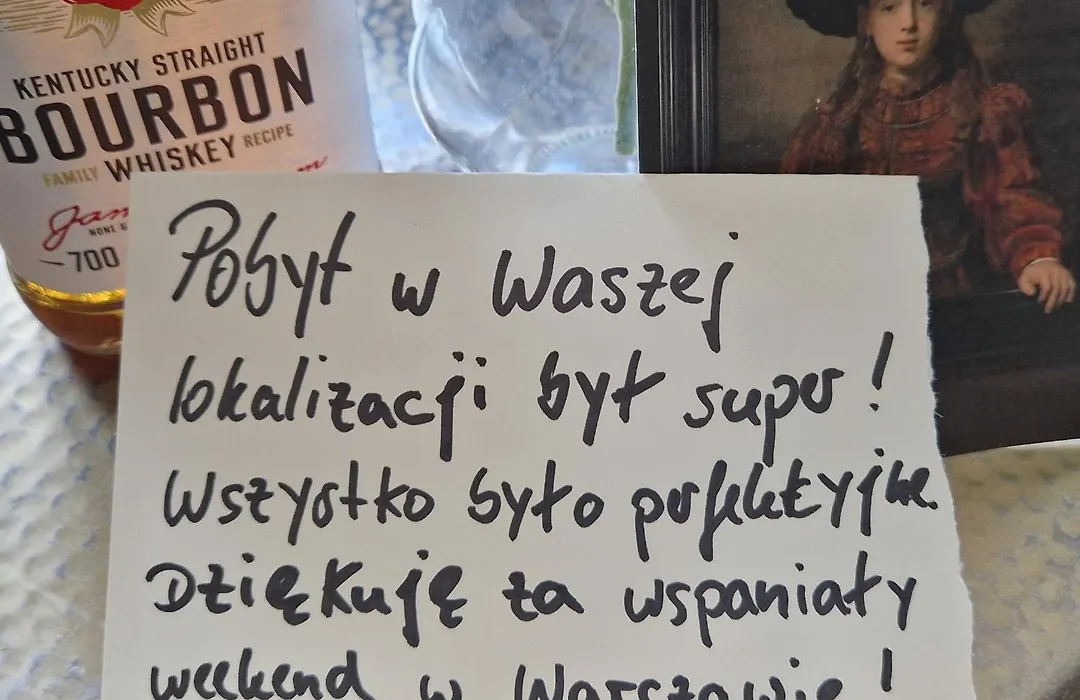 KENTUCKY STRAIGHT
BOURBON
FAMILY WHISKEY RECIPE
NONE G
700
Pobyt w Waszej
lokalizacji był super!
Wszystko było
Dziękuję za wspaniały
weekend w Warszawie!